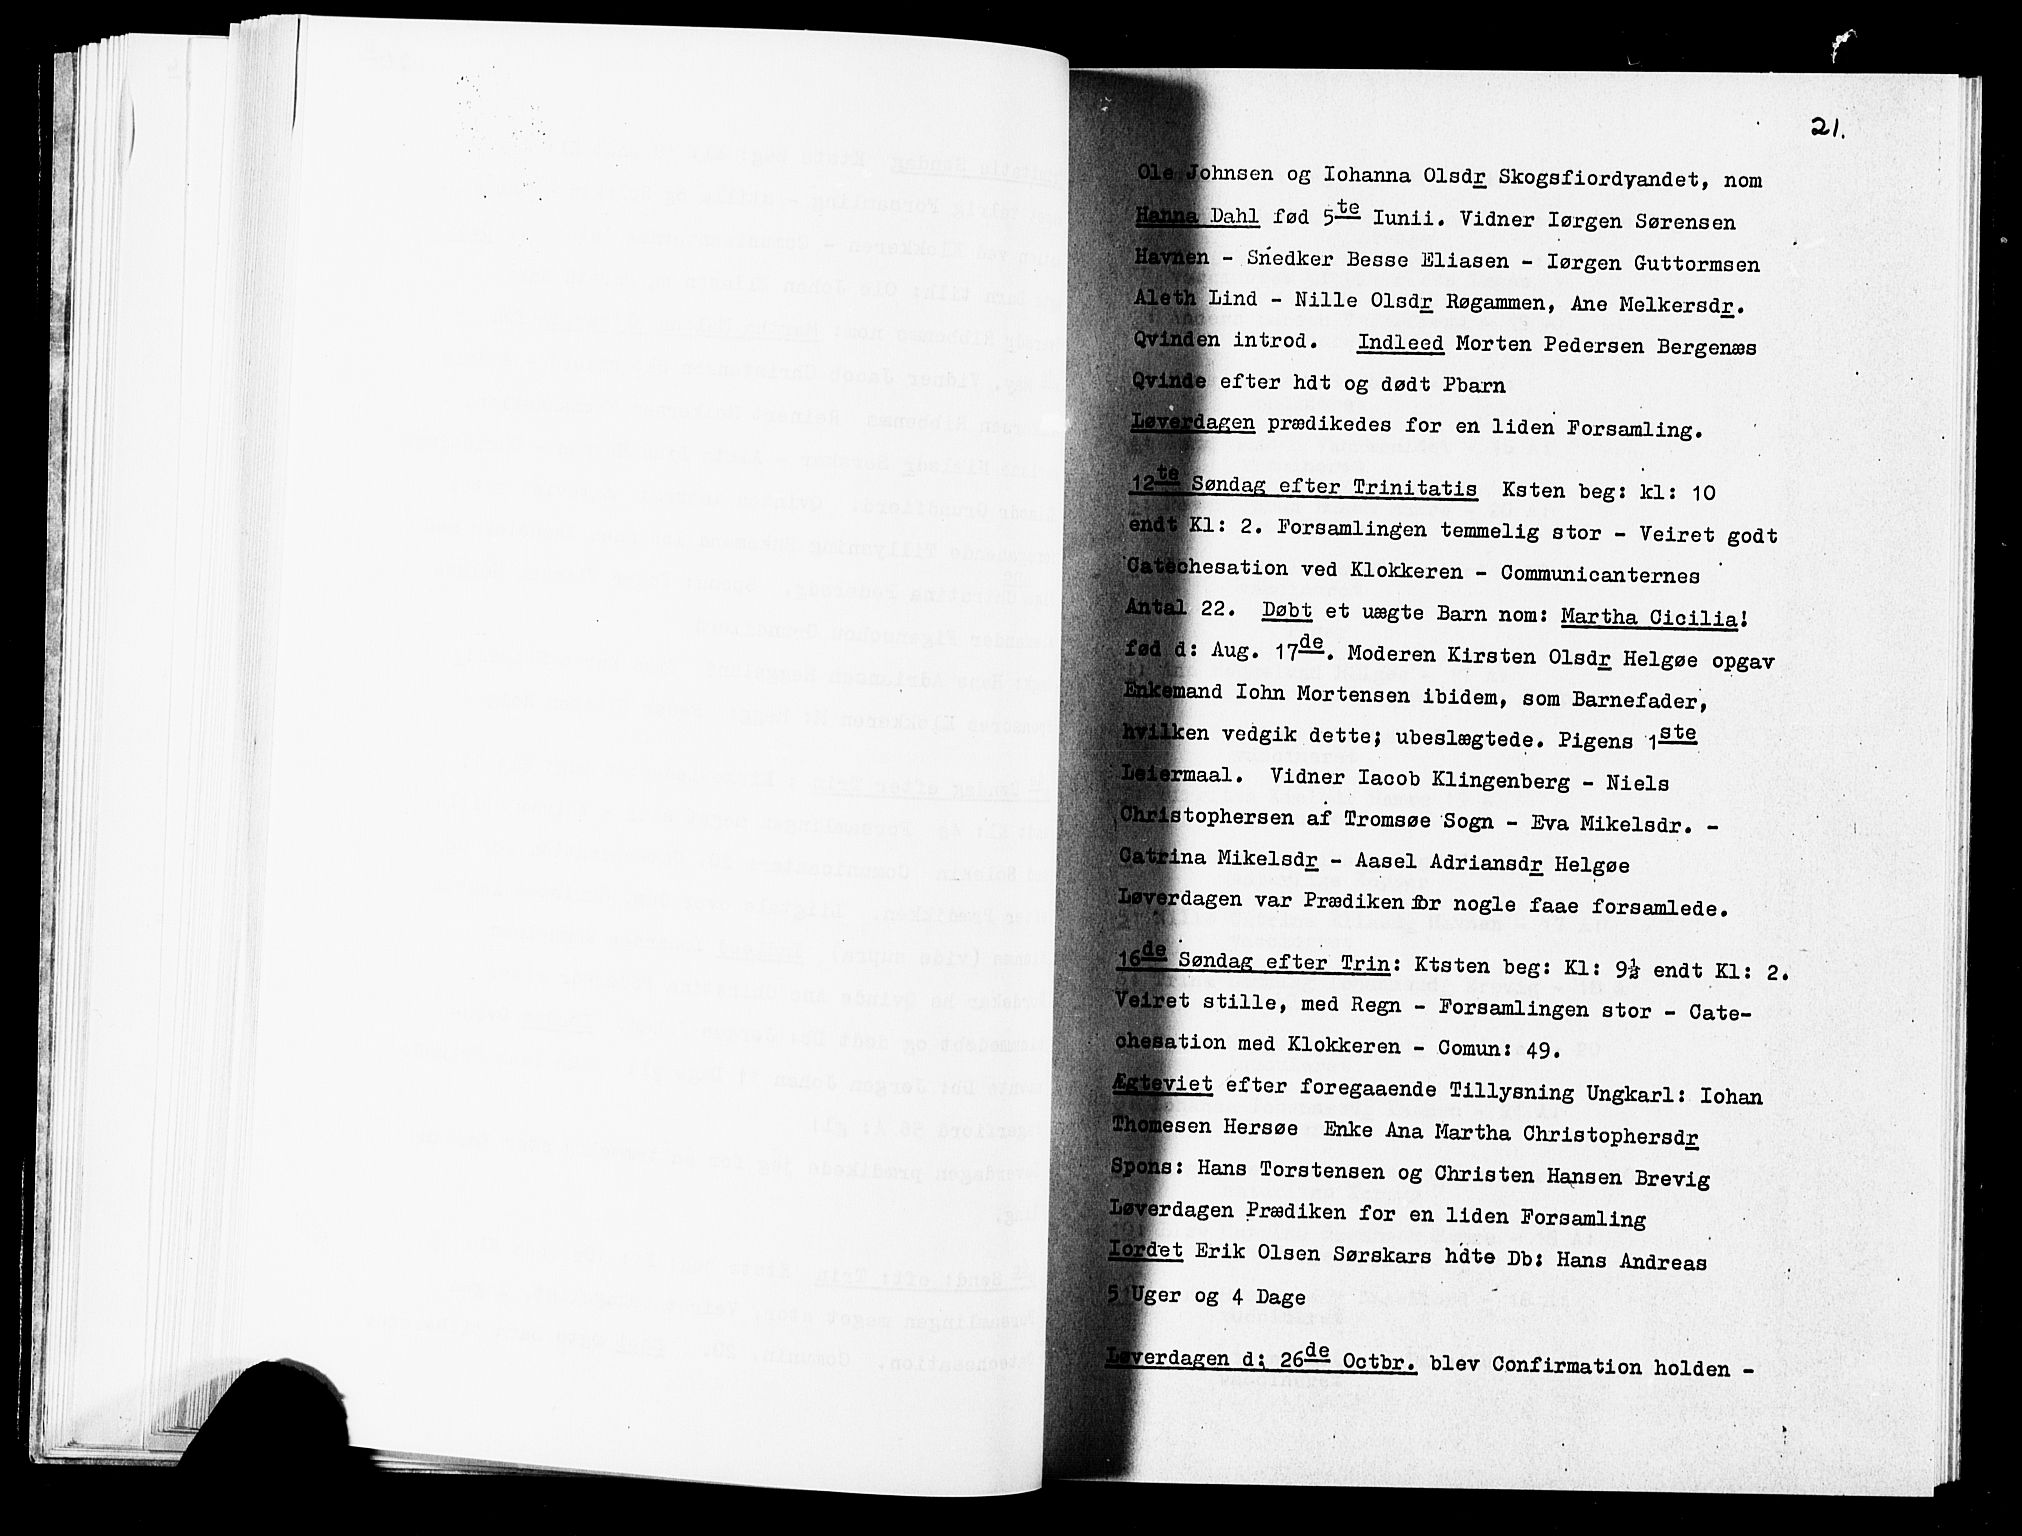 21.
Ole Johnsen og Iohanna Olsdr Skogsfiordvandet, nom
Hanna Dahl fød 5te Iunii. Vidner Iørgen Sørensen
Havnen - Snedker Besse Eliasen - Iørgen Guttormsen
Aleth Lind - Nille Olsdr Røgammen, Ane Melkersdr.
Qvinden introd. Indleed Morten Pedersen Bergenæs
Qvinde efter hdt og dødt Pbarn
Løverdagen prædikedes for en liden Forsamling.
12te Søndag efter Trinitatis Ksten beg: kl: 10
endt Kl: 2. Forsamlingen temmelig stor - Veiret godt
Catechesation ved Klokkeren - Communicanternes
Antal 22. Døbt et uægte Barn nom: Martha Cicilia!
fød d: Aug. 17de. Moderen Kirsten Olsdr Helgøe opgav
Enkemand Iohn Mortensen ibidem, som Barnefader,
hvilken vedgik dette; ubeslægtede. Pigens 1ste
Leiermaal. Vidner Iacob Klingenberg - Niels
Christophersen af Tromsøe Sogn - Eva Mikelsdr. -
Catrina Mikelsdr - Aasel Adriansdr Helgøe
Løverdagen var Prædiken for nogle faae forsamlede.
16de Søndag efter Trin: Ktsten beg: Kl: 9½ endt Kl: 2.
Veiret stille, med Regn - Forsamlingen stor - Cate-
chesation med Klokkeren - Comun: 49.
Ægteviet efter foregaaende Tillysning Ungkarl: Iohan
Thomesen Hersøe Enke Ana Martha Christophersdr
Spons: Hans Torstensen og Christen Hansen Brevig
Løverdagen Prædiken for en liden Forsamling
Iordet Erik Olsen Sørskars hdte Db: Hans Andreas
5 Uger og 4 Dage
Løverdagen d: 26de Octbr. blev Confirmation holden -